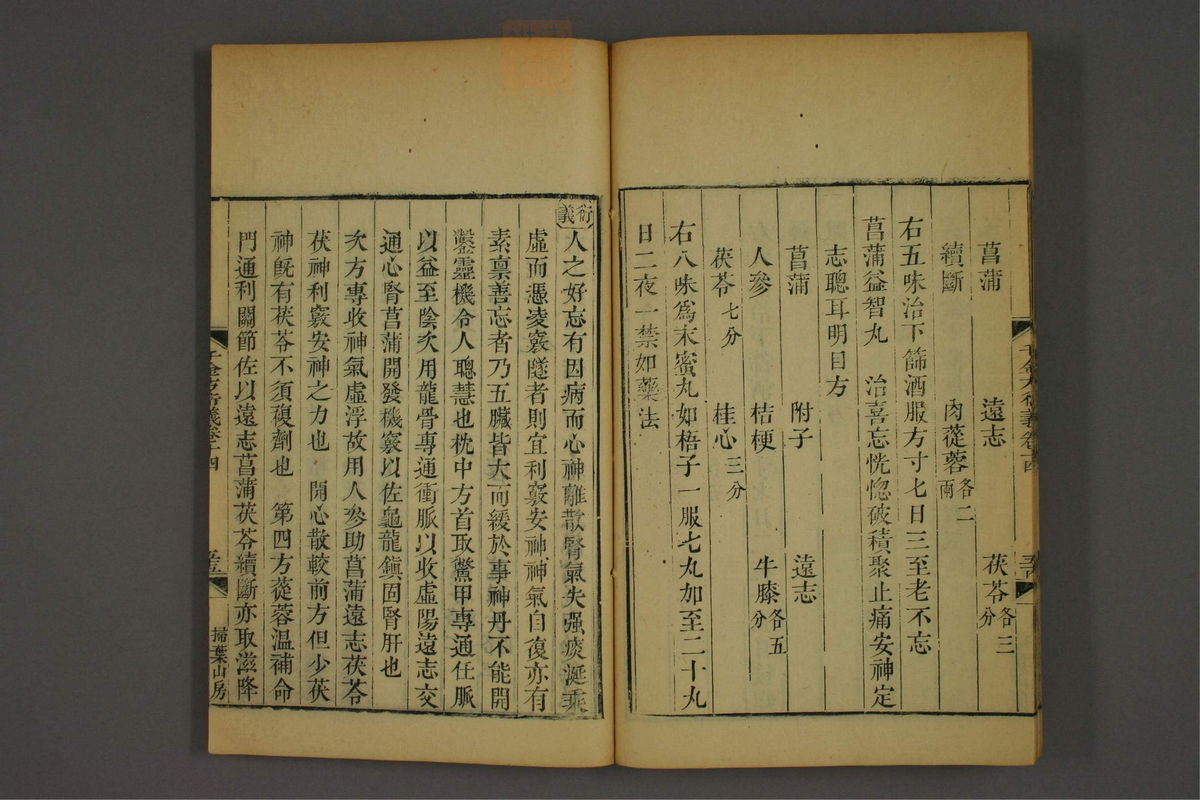 菖蒲　遠志　茯苓各三分
續斷　肉蓯蓉各二兩
右五味治下篩酒服方寸七日三至老不忘
菖蒲益智丸　治喜忘恍惚破積聚止痛安神定
志聰耳明目方
菖蒲　附子　遠志
人參　桔梗　牛膝各五分
茯苓七分　桂心三分
右八味爲末蜜丸如梧子一服七丸如至二十丸
日二夜一禁如藥法
衍義
人之好忘有因病而心神離散腎氣失强痰涎乘
虛而憑凌竅隧者則宜利竅安神神氣自復亦有
素稟善忘者乃五臟皆大而緩於事神丹不能開
鑿靈機令人聰慧也枕中方首取鱉甲專通任脈
以益至陰次用龍骨專通衝脈以收虛陽遠志交
通心腎菖蒲開發機竅以佐龜龍鎮固腎肝也
次方專收神氣虛浮故用人參助菖蒲遠志茯苓
茯神利竅安神之力也　開心散較前方但少茯
神旣有茯苓不須複劑也　第四方蓯蓉溫補命
門通利關節佐以遠志菖蒲茯苓續斷亦取滋降
千金方衍義卷十四
掃葉山房